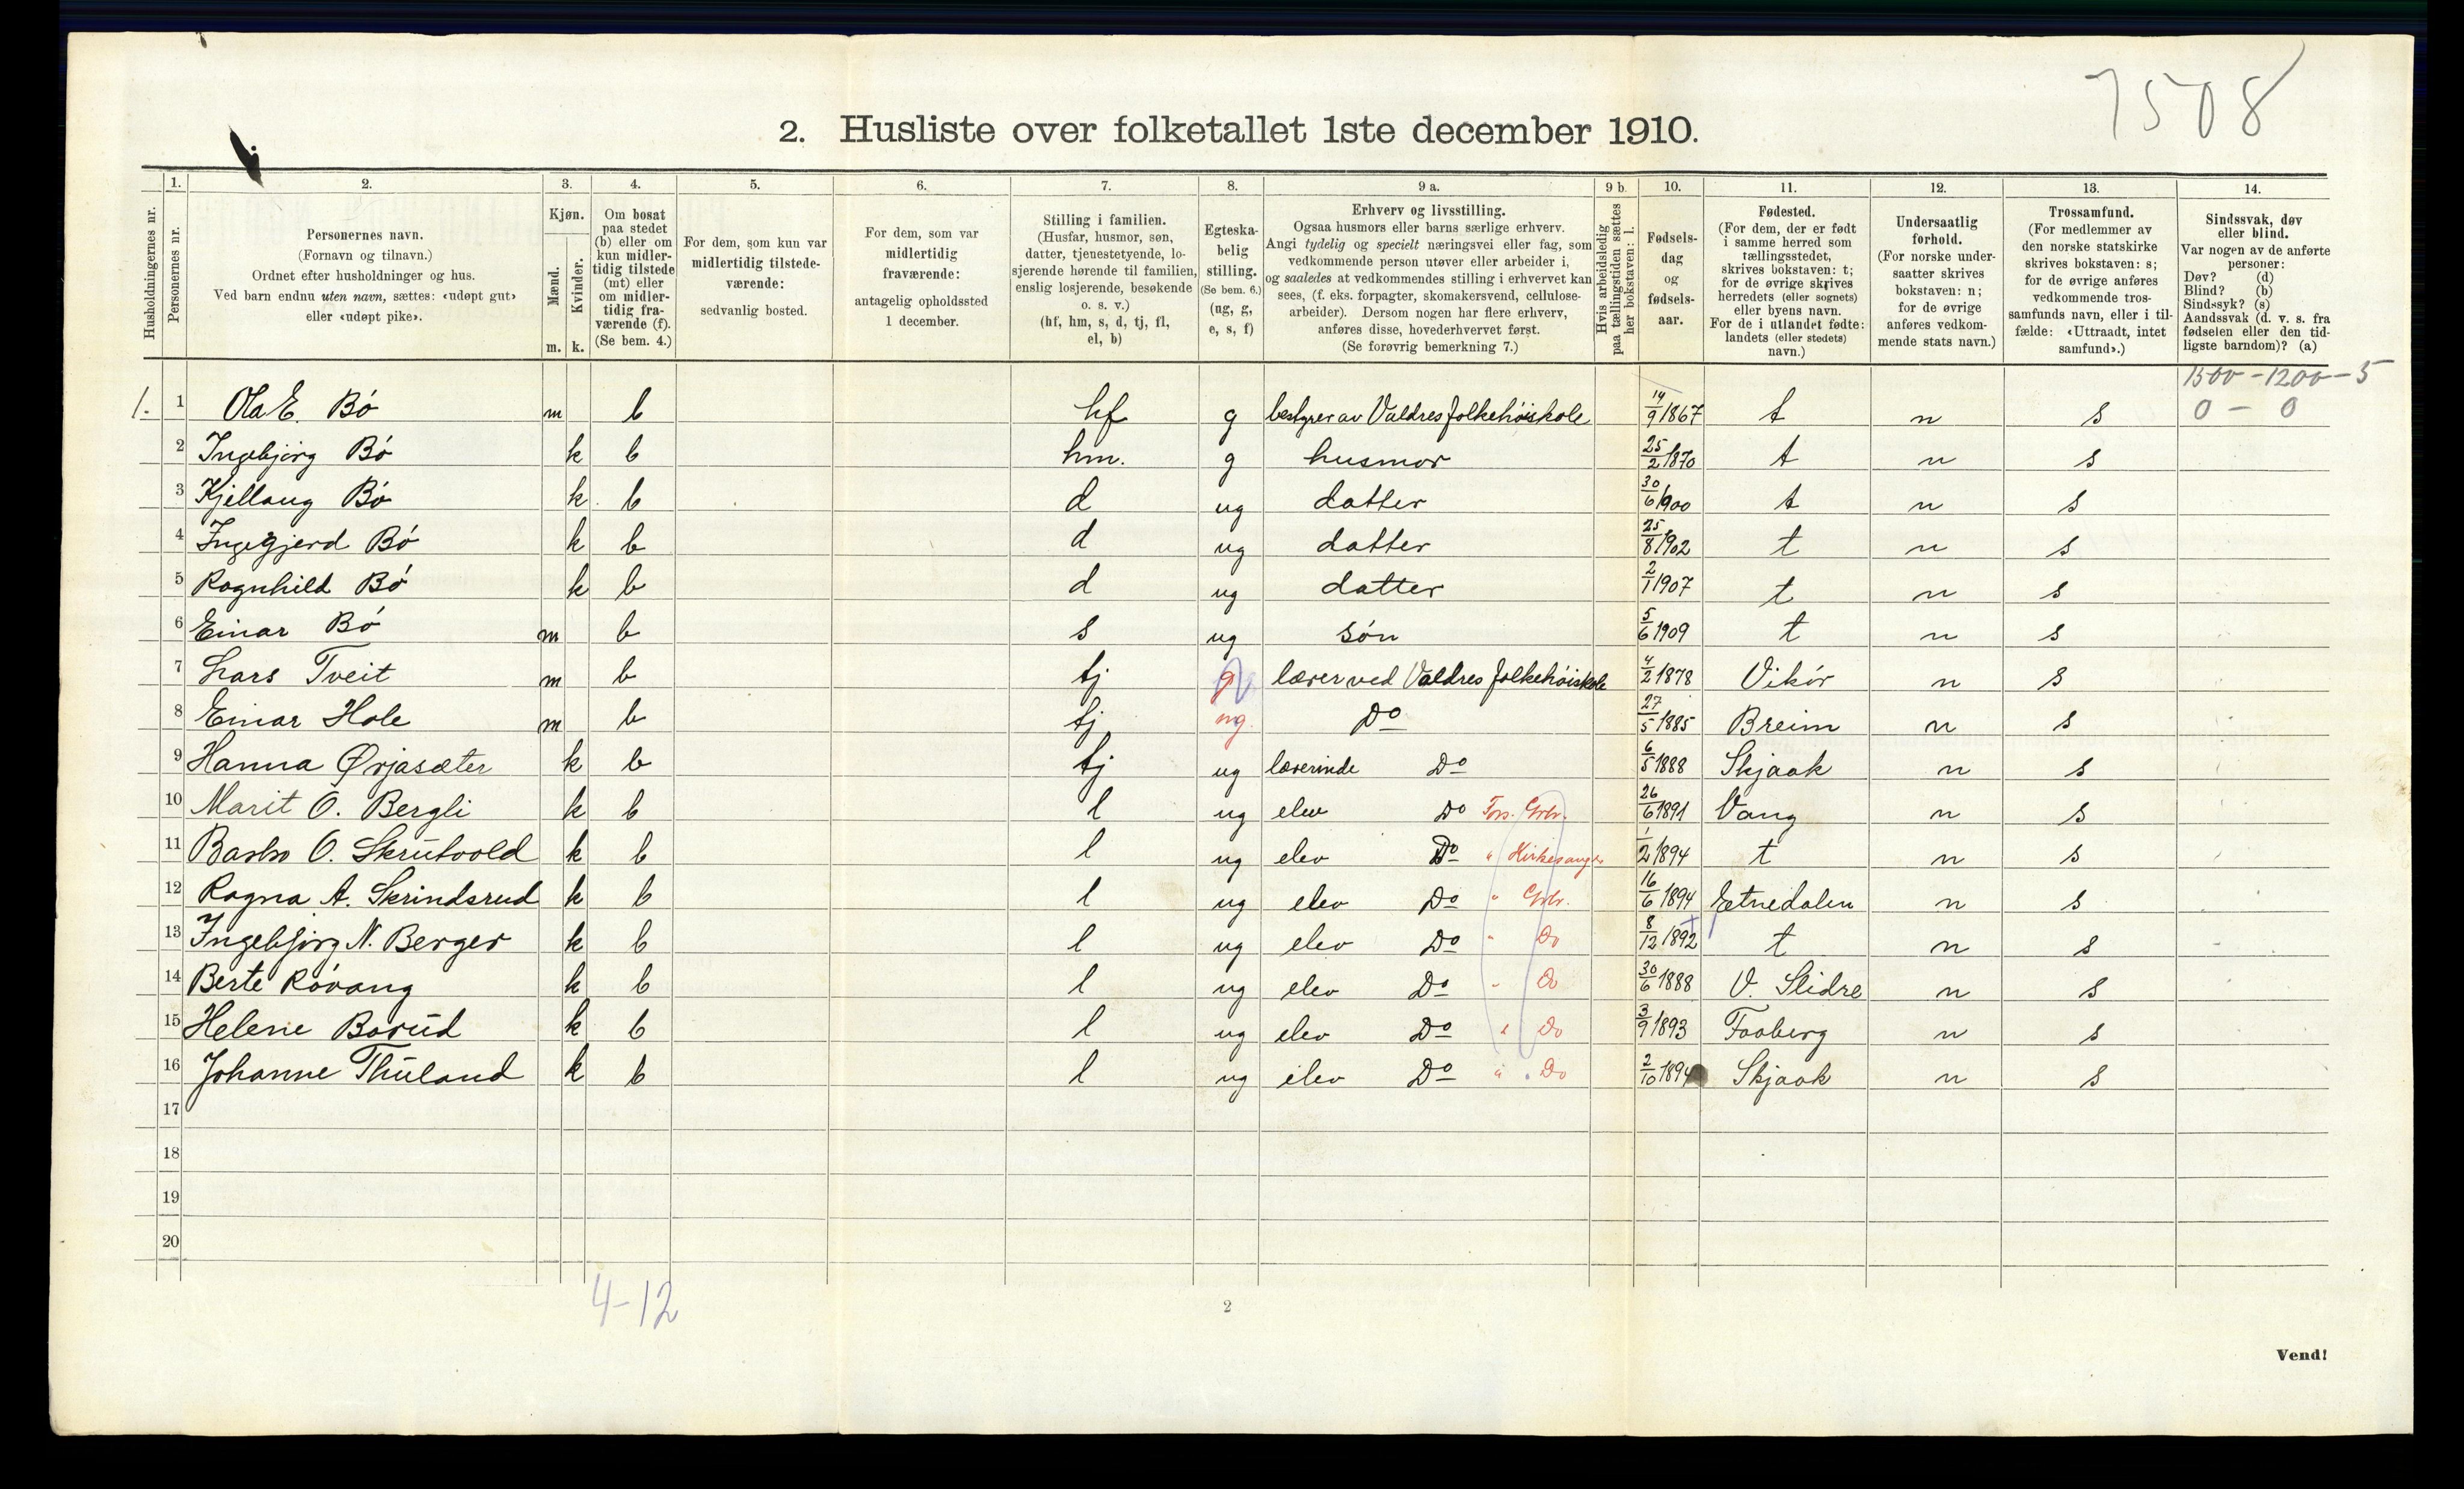 7508
2. Husliste over folketallet 1ste december 1910.
Husholdningernes nr.
1. Personernes nr.
2. Personernes navn. (Fornavn og tilnavn.) Ordnet efter husholdninger og hus. Ved barn endnu uten navn, sættes: «udøpt gut» eller «udøpt pike».
3. Kjøn. Mænd. m. Kvinder. k.
4. Om bosat paa stedet (b) eller om kun midlertidig tilstede (mt) eller om midlertidig fraværende (f). (Se bem. 4.)
5. For dem, som kun var midlertidig tilstedeværende: sedvanlig bosted.
6. For dem, som var midlertidig fraværende: antagelig opholdssted 1 december.
7. Stilling i familien. (Husfar, husmor, søn, datter, tjenestetyende, losjerende hørende til familien, enslig losjerende, besøkende o. s. v.) (hf, hm, s, d, tj, fl, el, b)
8. Egteskabelig stilling. (Se bem. 6.) (ug, g, e, s, f)
9 a. Erhverv og livsstilling. Ogsaa husmors eller barns særlige erhverv. Angi tydelig og specielt næringsvei eller fag, som vedkommende person utøver eller arbeider i, og saaledes at vedkommendes stilling i erhvervet kan sees, (f. eks. forpagter, skomakersvend, cellulosearbeider). Dersom nogen har flere erhverv, anføres disse, hovederhvervet først. (Se forøvrig bemerkning 7.)
9 b. Hvis arbeidsledig paa tællingstiden sættes her bokstaven: l.
10. Fødselsdag og fødselsaar.
11. Fødested. (For dem, der er født i samme herred som tællingsstedet, skrives bokstaven: t; for de øvrige skrives herredets (eller sognets) eller byens navn. For de i utlandet fødte: landets (eller stedets) navn.)
12. Undersaatlig forhold. (For norske undersaatter skrives bokstaven: n; for de øvrige anføres vedkommende stats navn.)
13. Trossamfund. (For medlemmer av den norske statskirke skrives bokstaven: s; for de øvrige anføres vedkommende trossamfunds navn, eller i tilfælde: «Uttraadt, intet samfund».)
14. Sindssvak, døv eller blind. Var nogen av de anførte personer: Døv? (d) Blind? (b) Sindssyk? (s) Aandssvak (d. v. s. fra fødselen eller den tidligste barndom)? (a)
1500 - 1200 - 5
1. 1 Ola E. Bø m b hf g bestyrer av Valdres folkehøiskole 14/9 1867 t n s 0 - 0
2 Ingebjørg Bø k b hm. g husmor 25/2 1870 t n s
3 Kjellaug Bø k b d ug datter 30/6 1900 t n s
4 Ingegjerd Bø k b d ug datter 25/8 1902 t n s
5 Ragnhild Bø k b d ug datter 2/1 1907 t n s
6 Einar Bø m b s ug søn 5/6 1909 t n s
7 Lars Tveit m b tj g lærer ved Valdres folkehøiskole 4/2 1878 Vikør n s
8 Einar Hole m b tj ug. Do 27/5 1885 Breim n s
9 Hanna Ørjasæter k b tj ug lærerinde Do 6/5 1888 Skjaak n s
10 Marit O. Bergli k b l ug elev Do Fors. Grbr. 26/6 1891 Vang n s
11 Barbo O. Skrutvold k b l ug elev Do " Kirkesanger 1/2 1894 t n s
12 Ragna A. Skrindsrud k b l ug elev Do " Grbr. 16/6 1894 Etnedalen n s
13 Ingebjørg N. Berger k b l ug elev Do " Do 8/12 1892 t n s
14 Berte Røvang k b l ug elev Do " Do 30/6 1888 V. Slidre n s
15 Helene Borud k b l ug elev Do " Do 3/9 1893 Faaberg n s
16 Johanne Thuland k b l ug elev Do " Do 2/10 1894 Skjaak n s
17
18
19
20
4-12
2
Vend!